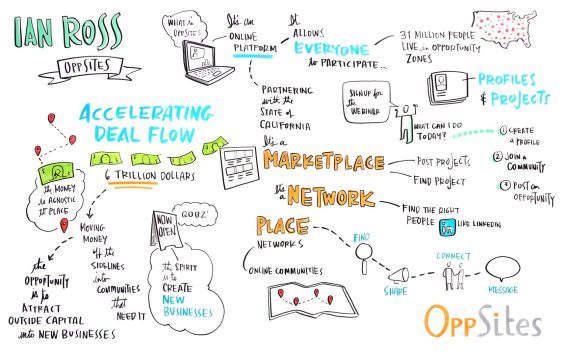 IAN ROSS
OPPSITES
WHAT IS
OPPSITES
It's an
ONLINE
PLATFORM
It
ALLOWS
EVERYONE
to PARTICIPATE..
31 MILLION PEOPLE
LIVE in OPPORTUNITY
ZONES
PROFILES
& PROJECTS
PARTNERING
with the
STATE of
CALIFORNIA
SIGN UP for
the
WEBINAR
WHAT CAN I DO
TODAY?
① CREATE
a PROFILE
② JOIN a
COMMUNITY
③ POST an
OPPORTUNITY
ACCELERATING
DEAL FLOW
6 TRILLION DOLLARS
the MONEY
is AGNOSTIC
to PLACE
It's a
MARKETPLACE
POST PROJECTS
FIND PROJECT
It's a
NETWORK
FIND THE RIGHT
PEOPLE
in LIKE LINKEDIN
PLACE
NETWORKS
ONLINE COMMUNITIES
MOVING
MONEY
off the
SIDELINES
into
COMMUNITIES
that
NEED IT
the
OPPORTUNITY
is to
ATTRACT
OUTSIDE CAPITAL
into NEW BUSINESSES
NOW
OPEN
QOBZ'
the SPIRIT
is to
CREATE
NEW
BUSINESSES
FIND
SHARE
CONNECT
MESSAGE
OppSites